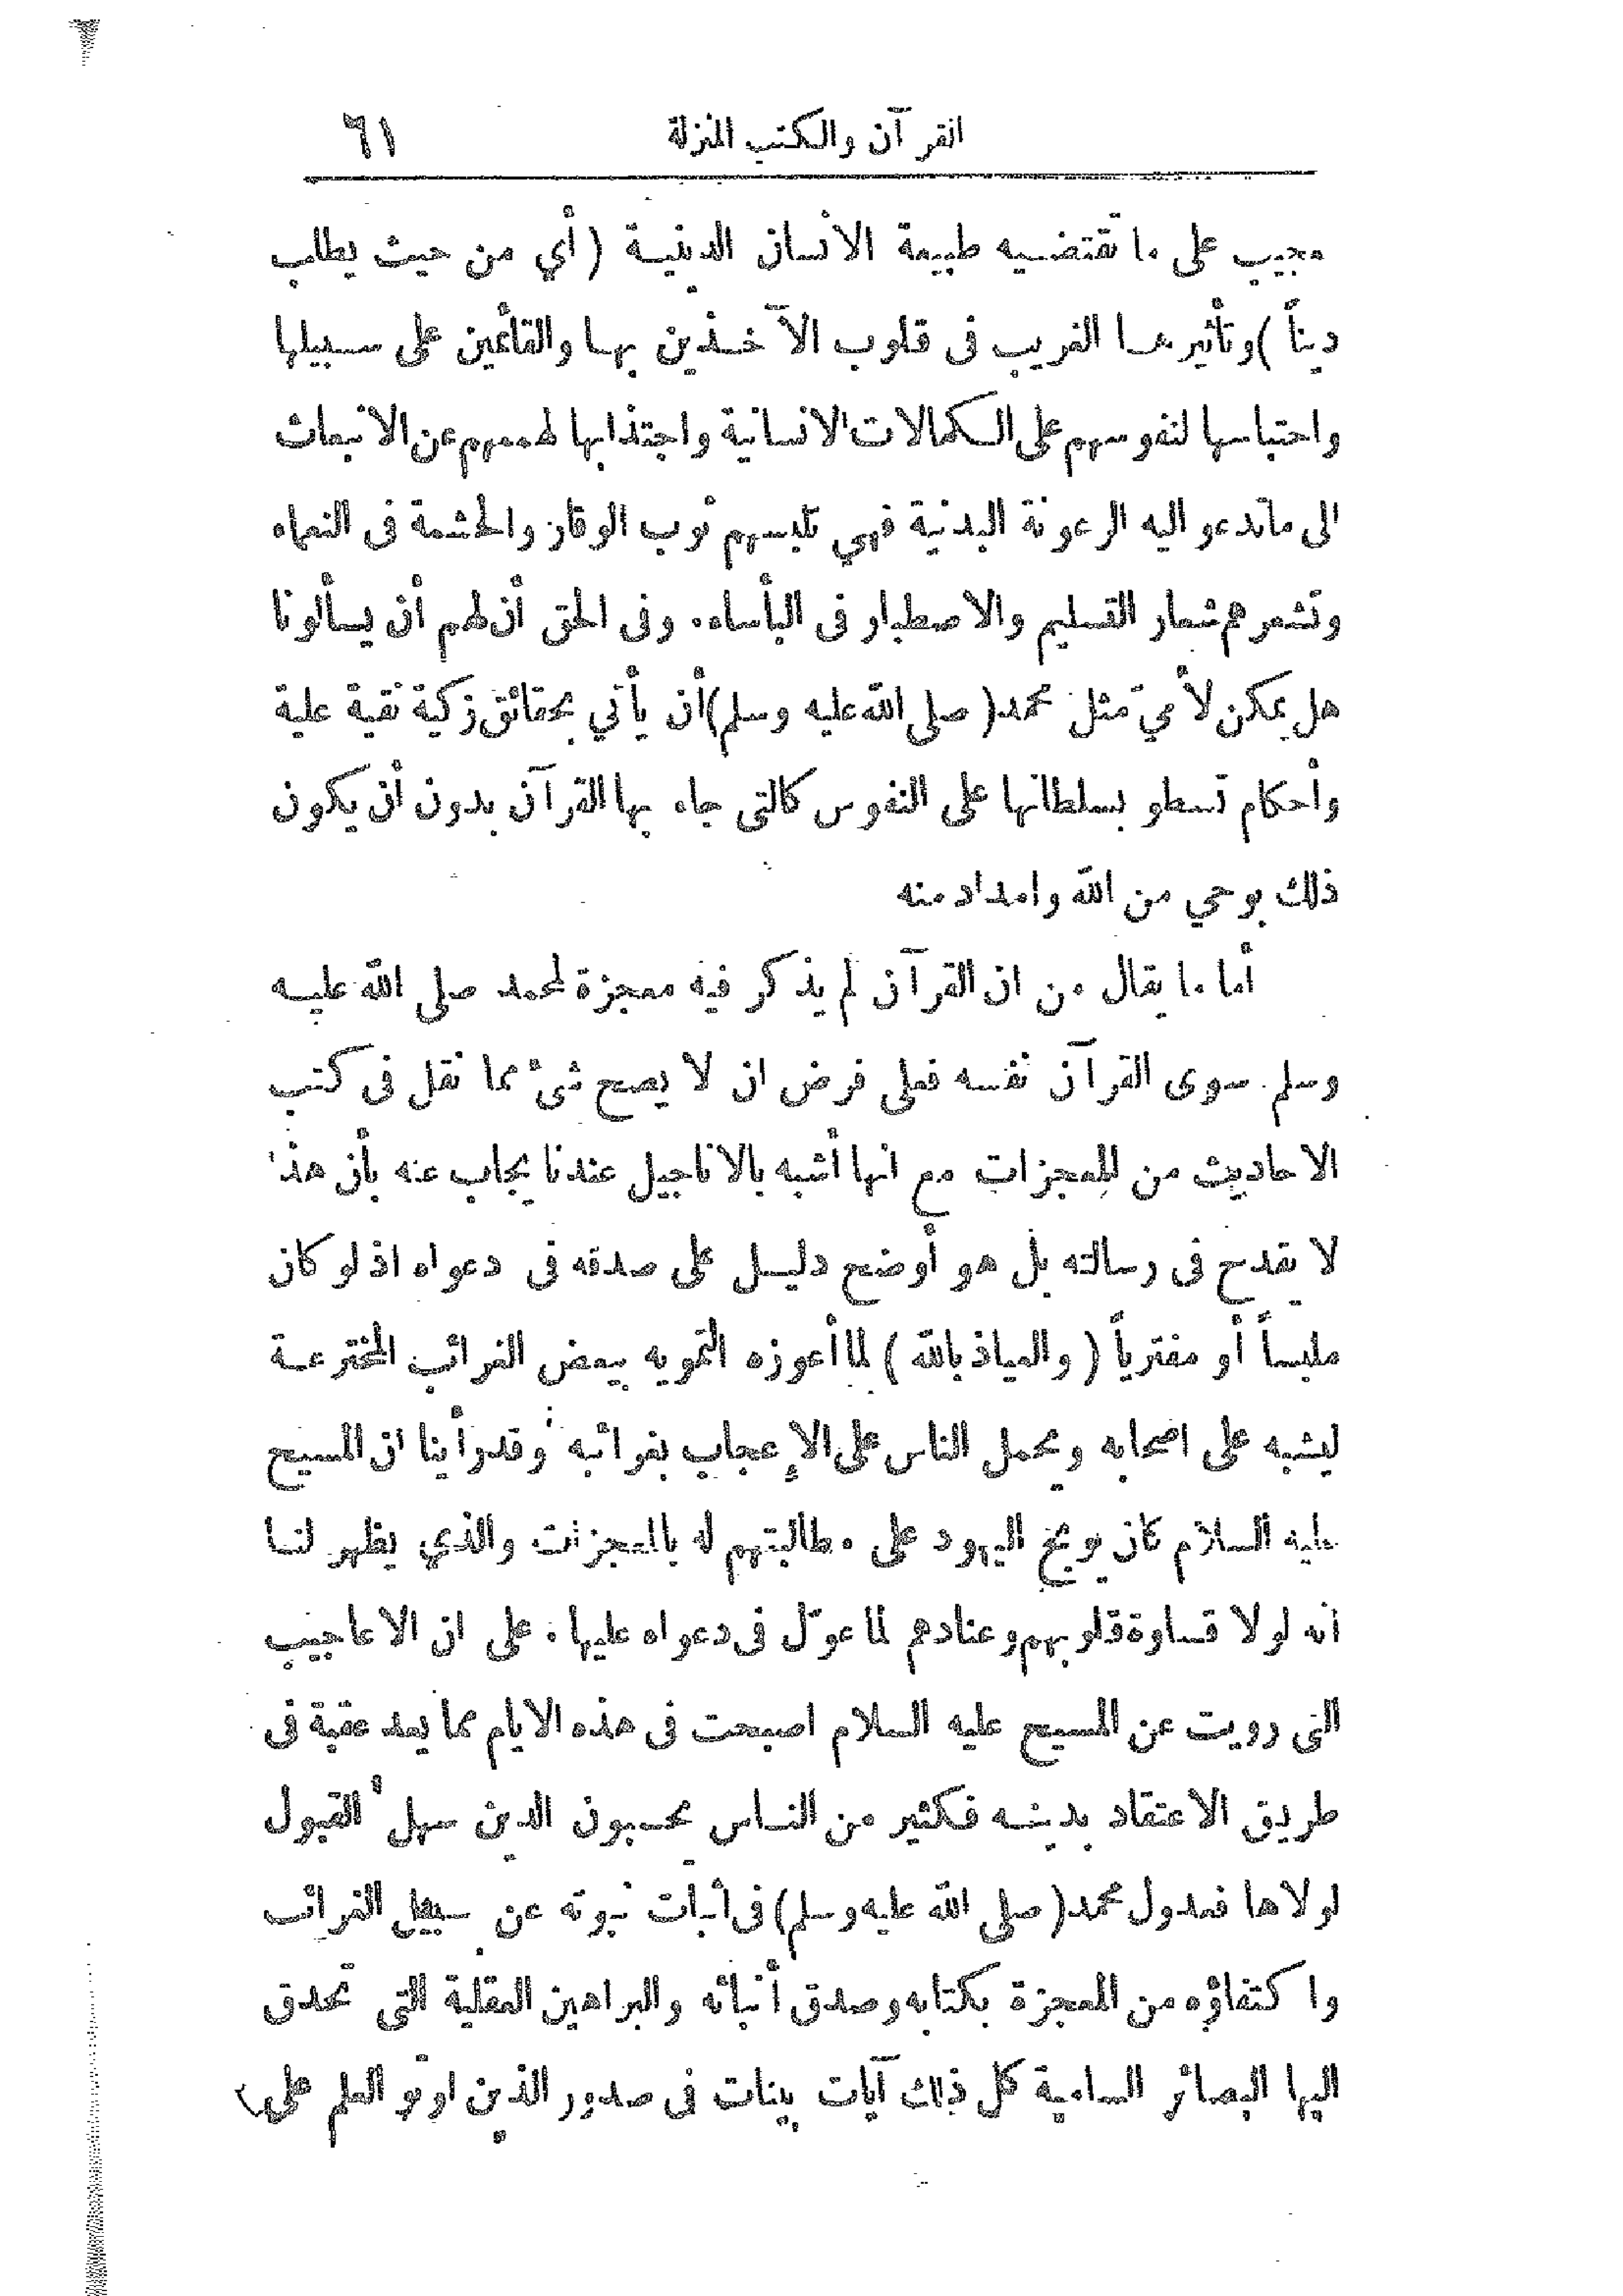 القرآن والكتب المنزلة ٦١
مجيب على ما تقتضيه طبيعة الانسان الدينية ( أي من حيث يطلب
ديناً ) وتأثيرها الغريب فى قلوب الآخذين بها والقائمين على سبيلها
واحتباسها لنفوسهم على الكمالات الانسانية واجتذابها لهممهم عن الانبعاث
الى ماتدعو اليه الرعونة البدنية فهي تلبسهم ثوب الوقار والحشمة فى النعماء
وتشعرهم شعار التسليم والاصطبار فى البأساء. وفى الحق أن لهم أن يسألونا
هل يمكن لأميّ مثل محمد ( صلى الله عليه وسلم ) أن يأتي بحقائق زكية نقية علية
وأحكام تسطو بسلطانها على النفوس كالتى جاء بها القرآن بدون أن يكون
ذلك بوحي من الله وامداد منه
أما ما يقال من ان القرآن لم يذكر فيه معجزة لمحمد صلى الله عليه
وسلم سوى القرآن نفسه فعلى فرض ان لا يصح شئ مما نقل فى كتب
الاحاديث من المعجزات مع انها أشبه بالاناجيل عندنا يجاب عنه بأن هذا
لا يقدح فى رسالته بل هو أوضح دليل على صدقه فى دعواه اذ لو كان
ملبساً أو مفترياً ( والعياذ بالله ) لما أعوزه التمويه ببعض الغرائب المخترعة
ليشبه على اصحابه ويحمل الناس على الإعجاب بغرائبه وقد رأينا ان المسيح
عليه السلام كان يوبخ اليهود على مطالبتهم له بالمعجزات والذي يظهر لنا
انه لولا قساوة قلوبهم وعنادهم لما عوّل فى دعواه عليها. على ان الاعاجيب
التى رويت عن المسيح عليه السلام اصبحت فى هذه الايام مما يعد عقبة فى
طريق الاعتقاد بدينه فكثير من الناس يحسبون الدين سهل القبول
لولاها فعدول محمد ( صلى الله عليه وسلم ) فى اثبات نبوته عن سبيل الغرائب
واكتفاؤه من المعجزة بكتابه وصدق أنبائه والبراهين العقلية التى تحدق
اليها البصائر السامية كل ذلك آيات بينات فى صدور الذين اوتو العلم على